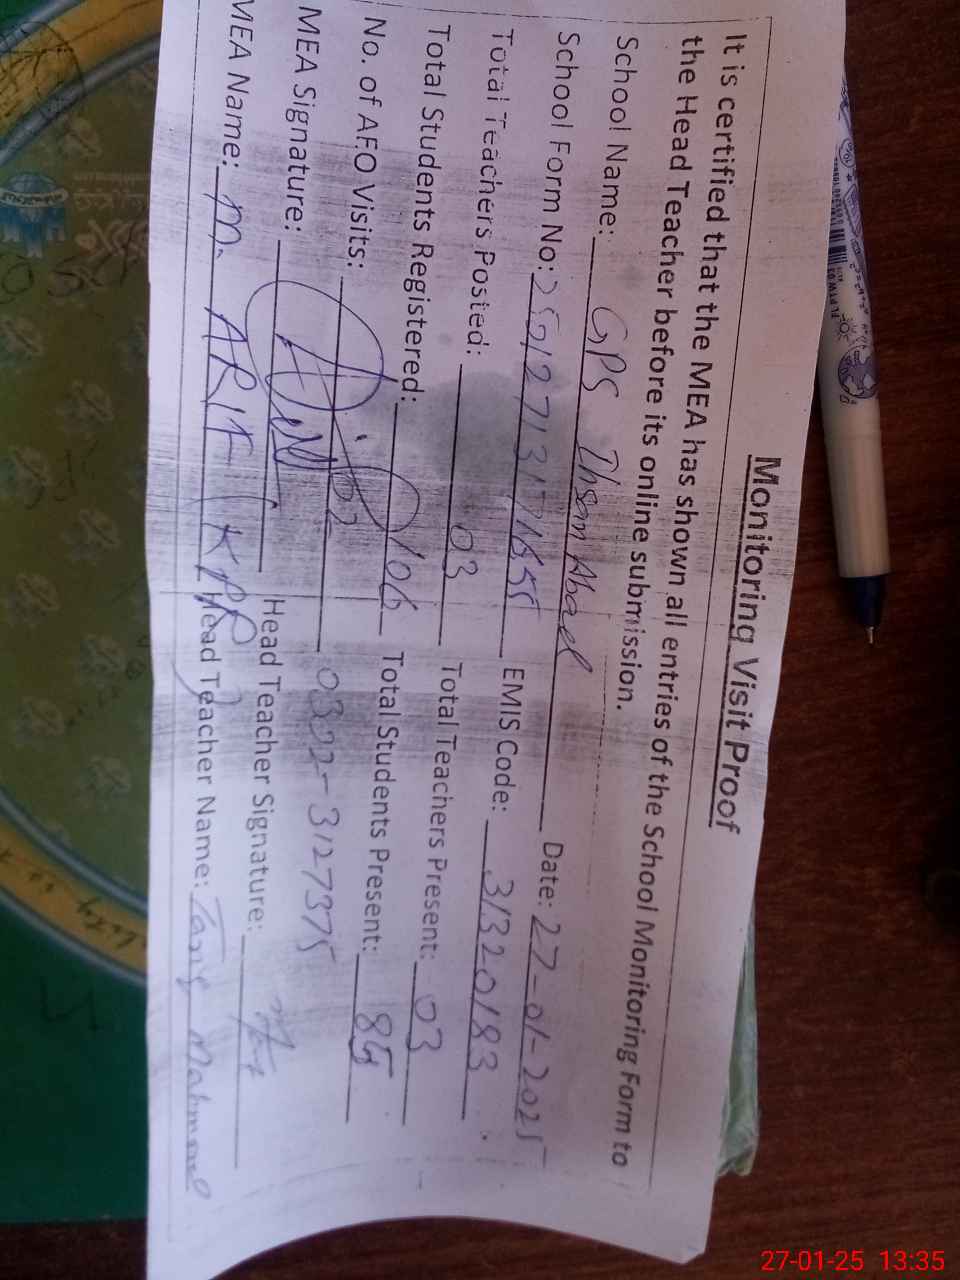 Monitoring Visit Proof
It is certified that the MEA has shown all entries of the School Monitoring Form to
the Head Teacher before its online submission.
School Name: GPS Ihsan Abad Date: 27-01-2025
School Form No: EMIS Code: 31320183
Total Teachers Posted: 03 Total Teachers Present: 03
Total Students Registered: 106 Total Students Present: 85
No. of AEO Visits: 02 0322-3127375
MEA Signature: Head Teacher Signature:
MEA Name: M. ARIF Head Teacher Name: Tariq Mahmood
27-01-25 13:35